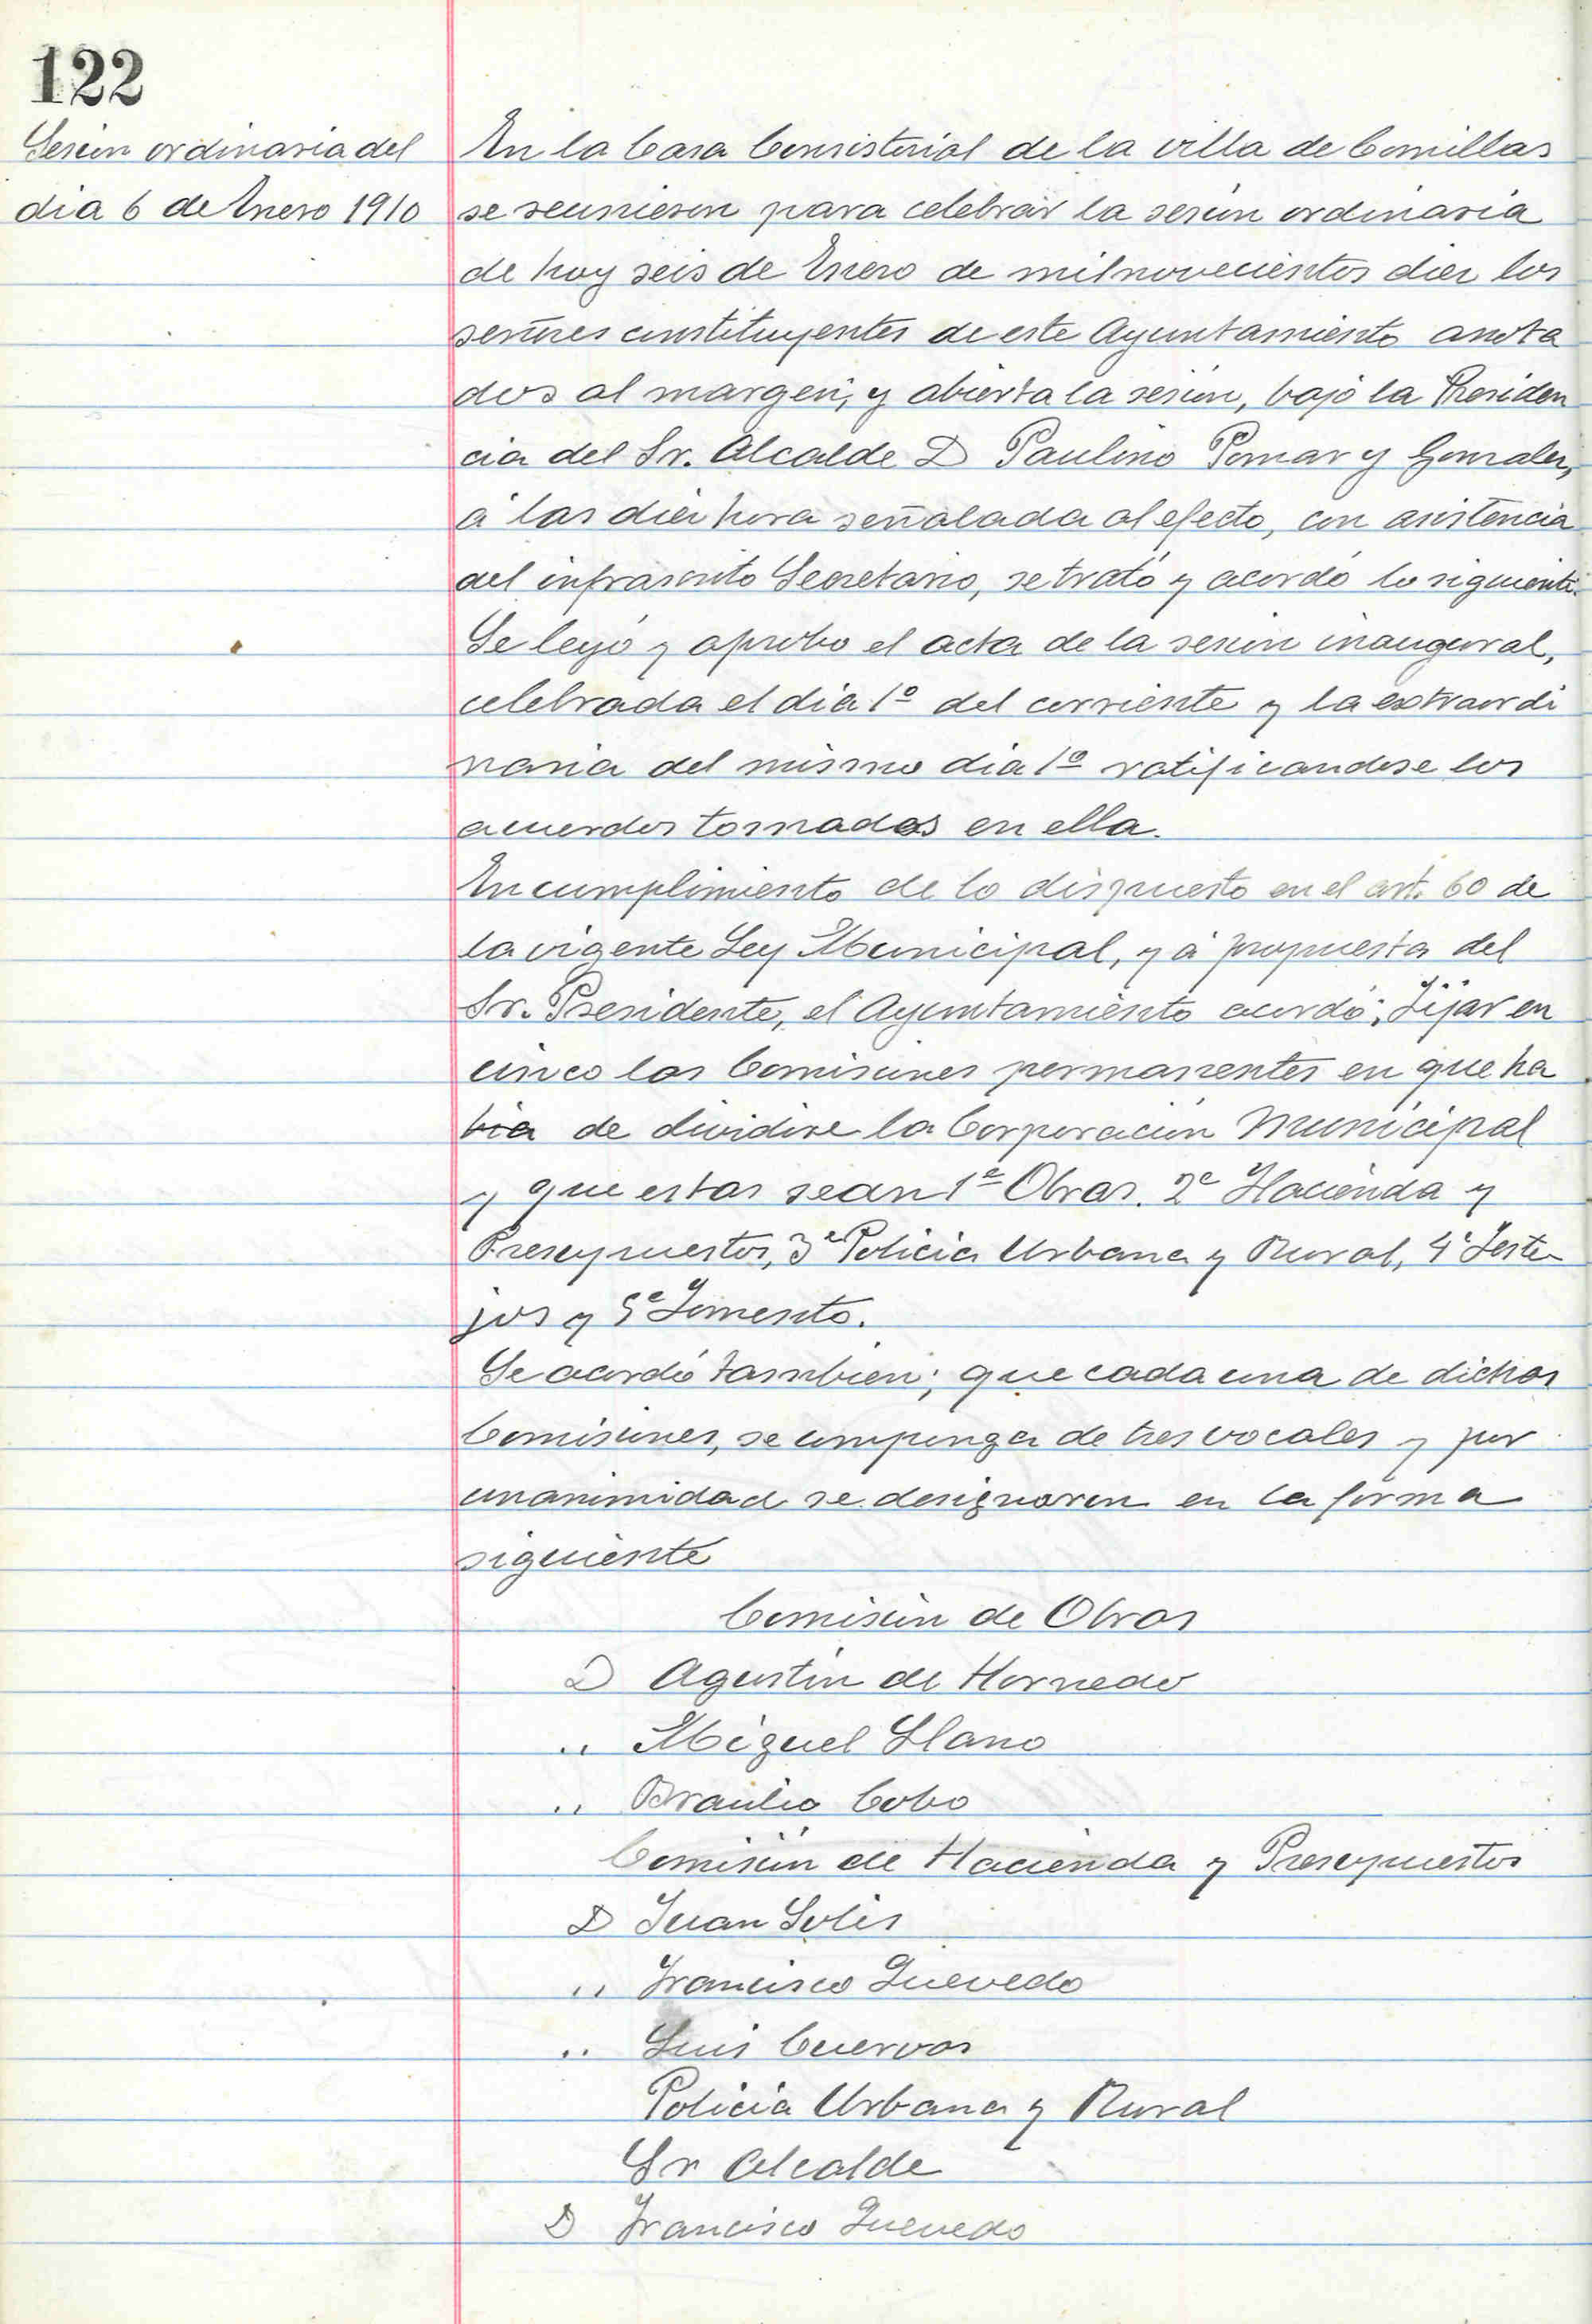 122
Sesión ordinaria del
dia 6 de Enero 1910
En la Casa Consistorial de la villa de Comillas
se reunieron para celebrar la sesión ordinaria
de hoy seis de Enero de mil novecientos diez los
señores constituyentes de este Ayuntamiento anota
dos al margen, y abierta la sesión, bajo la Presiden
cia del Sr. Alcalde D Paulino Pomar y Gonzalez,
á las diez hora señalada al efecto, con asistencia
del infrascrito Secretario, se trató y acordó lo siguiente.
Se leyó y aprobo el acta de la sesión inaugural,
celebrada el dia 1º del corriente y la extraordi
naria del mismo dia 1º ratificandose los
acuerdos tomados en ella.
En cumplimiento de lo dispuesto en el art. 60 de
la vigente Ley Municipal, y á propuesta del
Sr. Presidente, el Ayuntamiento acordó; Fijar en
cinco las Comisiones permanentes en que ha
bia de dividirse la Corporación Municipal
y que estas sean 1ª Obras. 2ª Hacienda y
Presupuestos, 3ª Policia Urbana y Rural, 4ª Feste-
jos y 5ª Fomento.
Se acordó tambien; que cada una de dichas
Comisiones, se componga de tres vocales y por
unanimidad se designaron en la forma
siguiente
Comisión de Obras
D Agustin de Hornedo
" Miguel Llano
" Braulio Cobo
Comisión de Hacienda y Presupuestos
D Juan Solis
" Francisco Quevedo
" Luis Cuervas
Policia Urbana y Rural
Sr Alcalde
D Francisco Quevedo